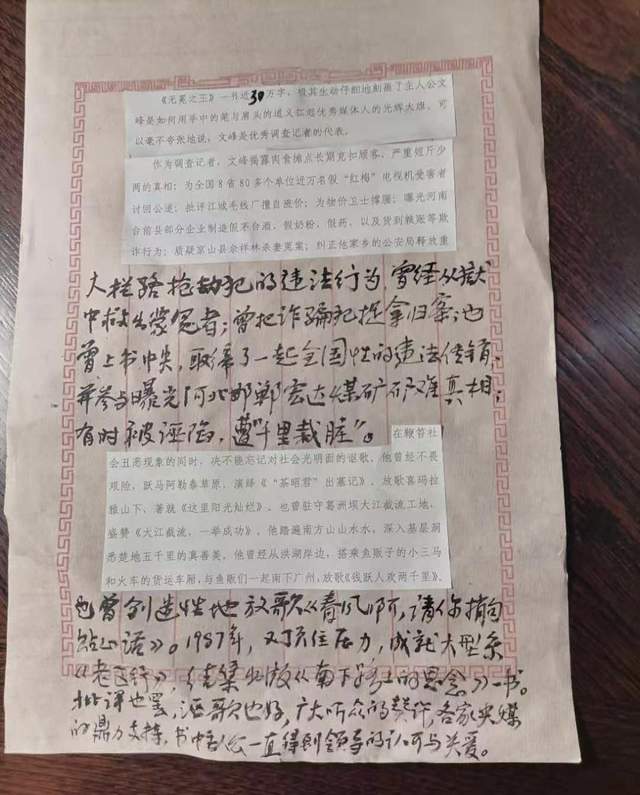 《无冕之王》一书近30万字，极其生动仔细地刻画了主人公文
峰是如何用手中的笔与肩头的道义扛起优秀媒体人的光辉大雄。可
以毫不夸张地说，文峰是优秀调查记者的代表。
作为调查记者，文峰揭露肉食摊点长期克扣顾客，严重短斤少
两的真相；为全国8省80多个单位近万名假“红梅”电视机受害者
讨回公道；批评江城毛线厂擅自涨价；为物价卫士撑腰；曝光河南
台前县部分企业制造假不台酒、假奶粉、假药、以及货到赖账等欺
诈行为；质疑京山县佘祥林杀妻冤案；纠正他家乡的公安局释放重
大拦路抢劫犯的违法行为，曾经从狱
中救出蒙冤者；曾把诈骗犯捉拿归案；也
曾上书中央，取缔了一起全国性的违法传销，
并参与曝光河北邯郸宏达煤矿矿难真相；
有时被诬陷，遭“千里栽脏”。
在鞭笞社
会丑恶现象的同时，决不能忘记对社会光明面的讴歌。他曾经不畏
艰险，跃马阿勒泰草原，演绎《“茶昭君”出塞记》，放歌喜玛拉
雅山下，著就《这里阳光灿烂》。也曾驻守葛洲坝大江截流工地，
盛赞《大江截流，一举成功》。他踏遍南方山山水水，深入基层洞
悉楚地五千里的真善美。他曾经从洪湖岸边，搭乘鱼贩子的小三马
和火车的货运车厢，与鱼贩们一起南下广州，放歌《浅跃人欢两千里》。
也曾创造性地放歌《春风啊，请你捎句
贴心话》。1987年，又顶住压力，成就大型系
《老区行》，结集出版《南下路上的思念》一书。
批评也罢，讴歌也好，广大听众的赞许，各家央媒
的鼎力支持，书中主人公一直得到领导的认可与关爱。